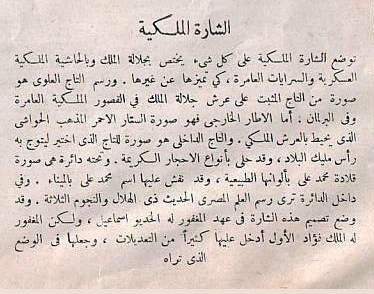 الشارة الملكية
توضع الشارة الملكية على كل شىء يختص بجلالة الملك وبالحاشية الملكية
العسكرية والسرايات العامرة ، كي تميزها عن غيرها . ورسم التاج العلوى هو
صورة من التاج المثبت على عرش جلالة الملك فى القصور الملكية العامرة
وفى البرلمان . أما الاطار الخارجى فهو صورة الستار الاحمر المذهب الحواشى
الذى يحيط بالعرش الملكي . والتاج الداخلى هو صورة للتاج الذى اختير ليتوج به
رأس مليك البلاد ، وقد حلى بأنواع الاحجار الكريمة . وتحته دائرة هى صورة
قلادة محمد على بألوانها الطبيعية ، وقد نقش عليها اسم محمد على بالميناء . وفي
داخل الدائرة ترى رسم العلم المصرى الحديث ذى الهلال والنجوم الثلاثة . وقد
وضع تصميم هذه الشارة فى عهد المغفور له الخديو اسماعيل ، ولكن المغفور
له الملك فؤاد الأول أدخل عليها كثيراً من التعديلات ، وجعلها فى الوضع
الذى تراه